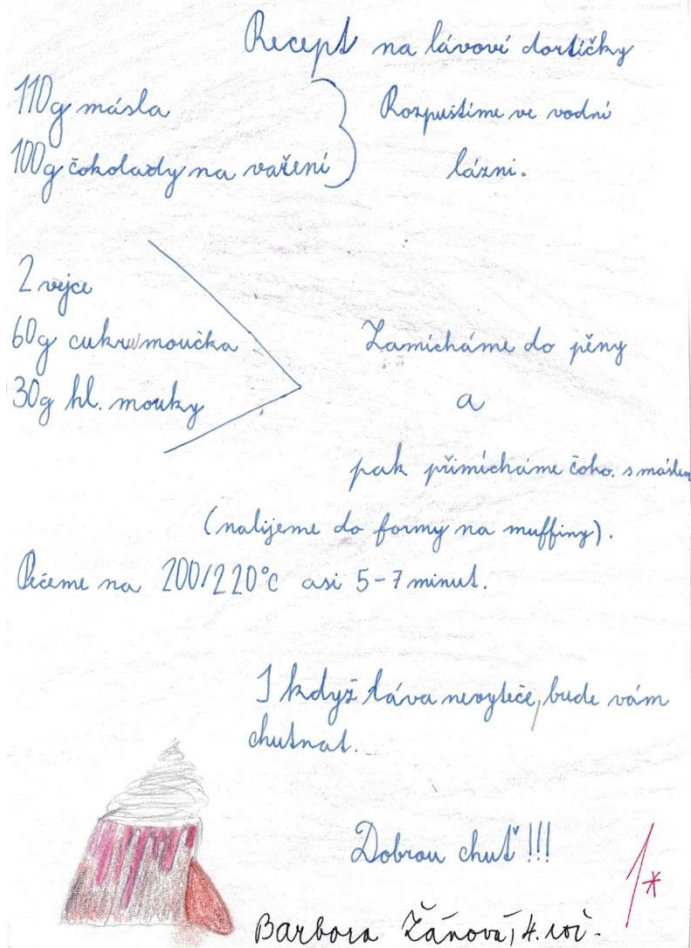 Recept na lávové dortíčky
110g másla
100g čokolady na vaření
Rozpustíme ve vodní
lázni.
2 vejce
60g cukrumoučka
30g hl. mouky
Zamícháme do pěny
a
pak přimícháme čoko. s máslem
(nalijeme do formy na muffiny).
Pečeme na 200/220°C asi 5-7 minut.
I když láva nevyteče, bude vám
chutnat.
Dobrou chuť!!!
1*
Barbora Žáňová, 4. roč.